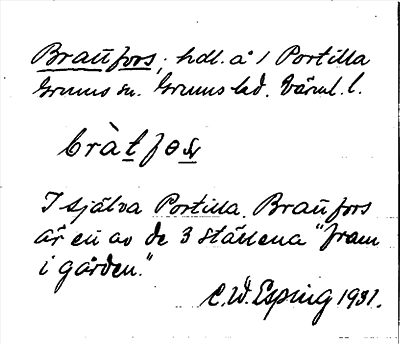 Brattfors, hdl. å 1 Portilla
Grums sn. Grums hd. Värml. l.
bràtfos
I själva Portilla. Brattfors
är en av de 3 ställena "fram
i gården."
C. W. Esping 1931.